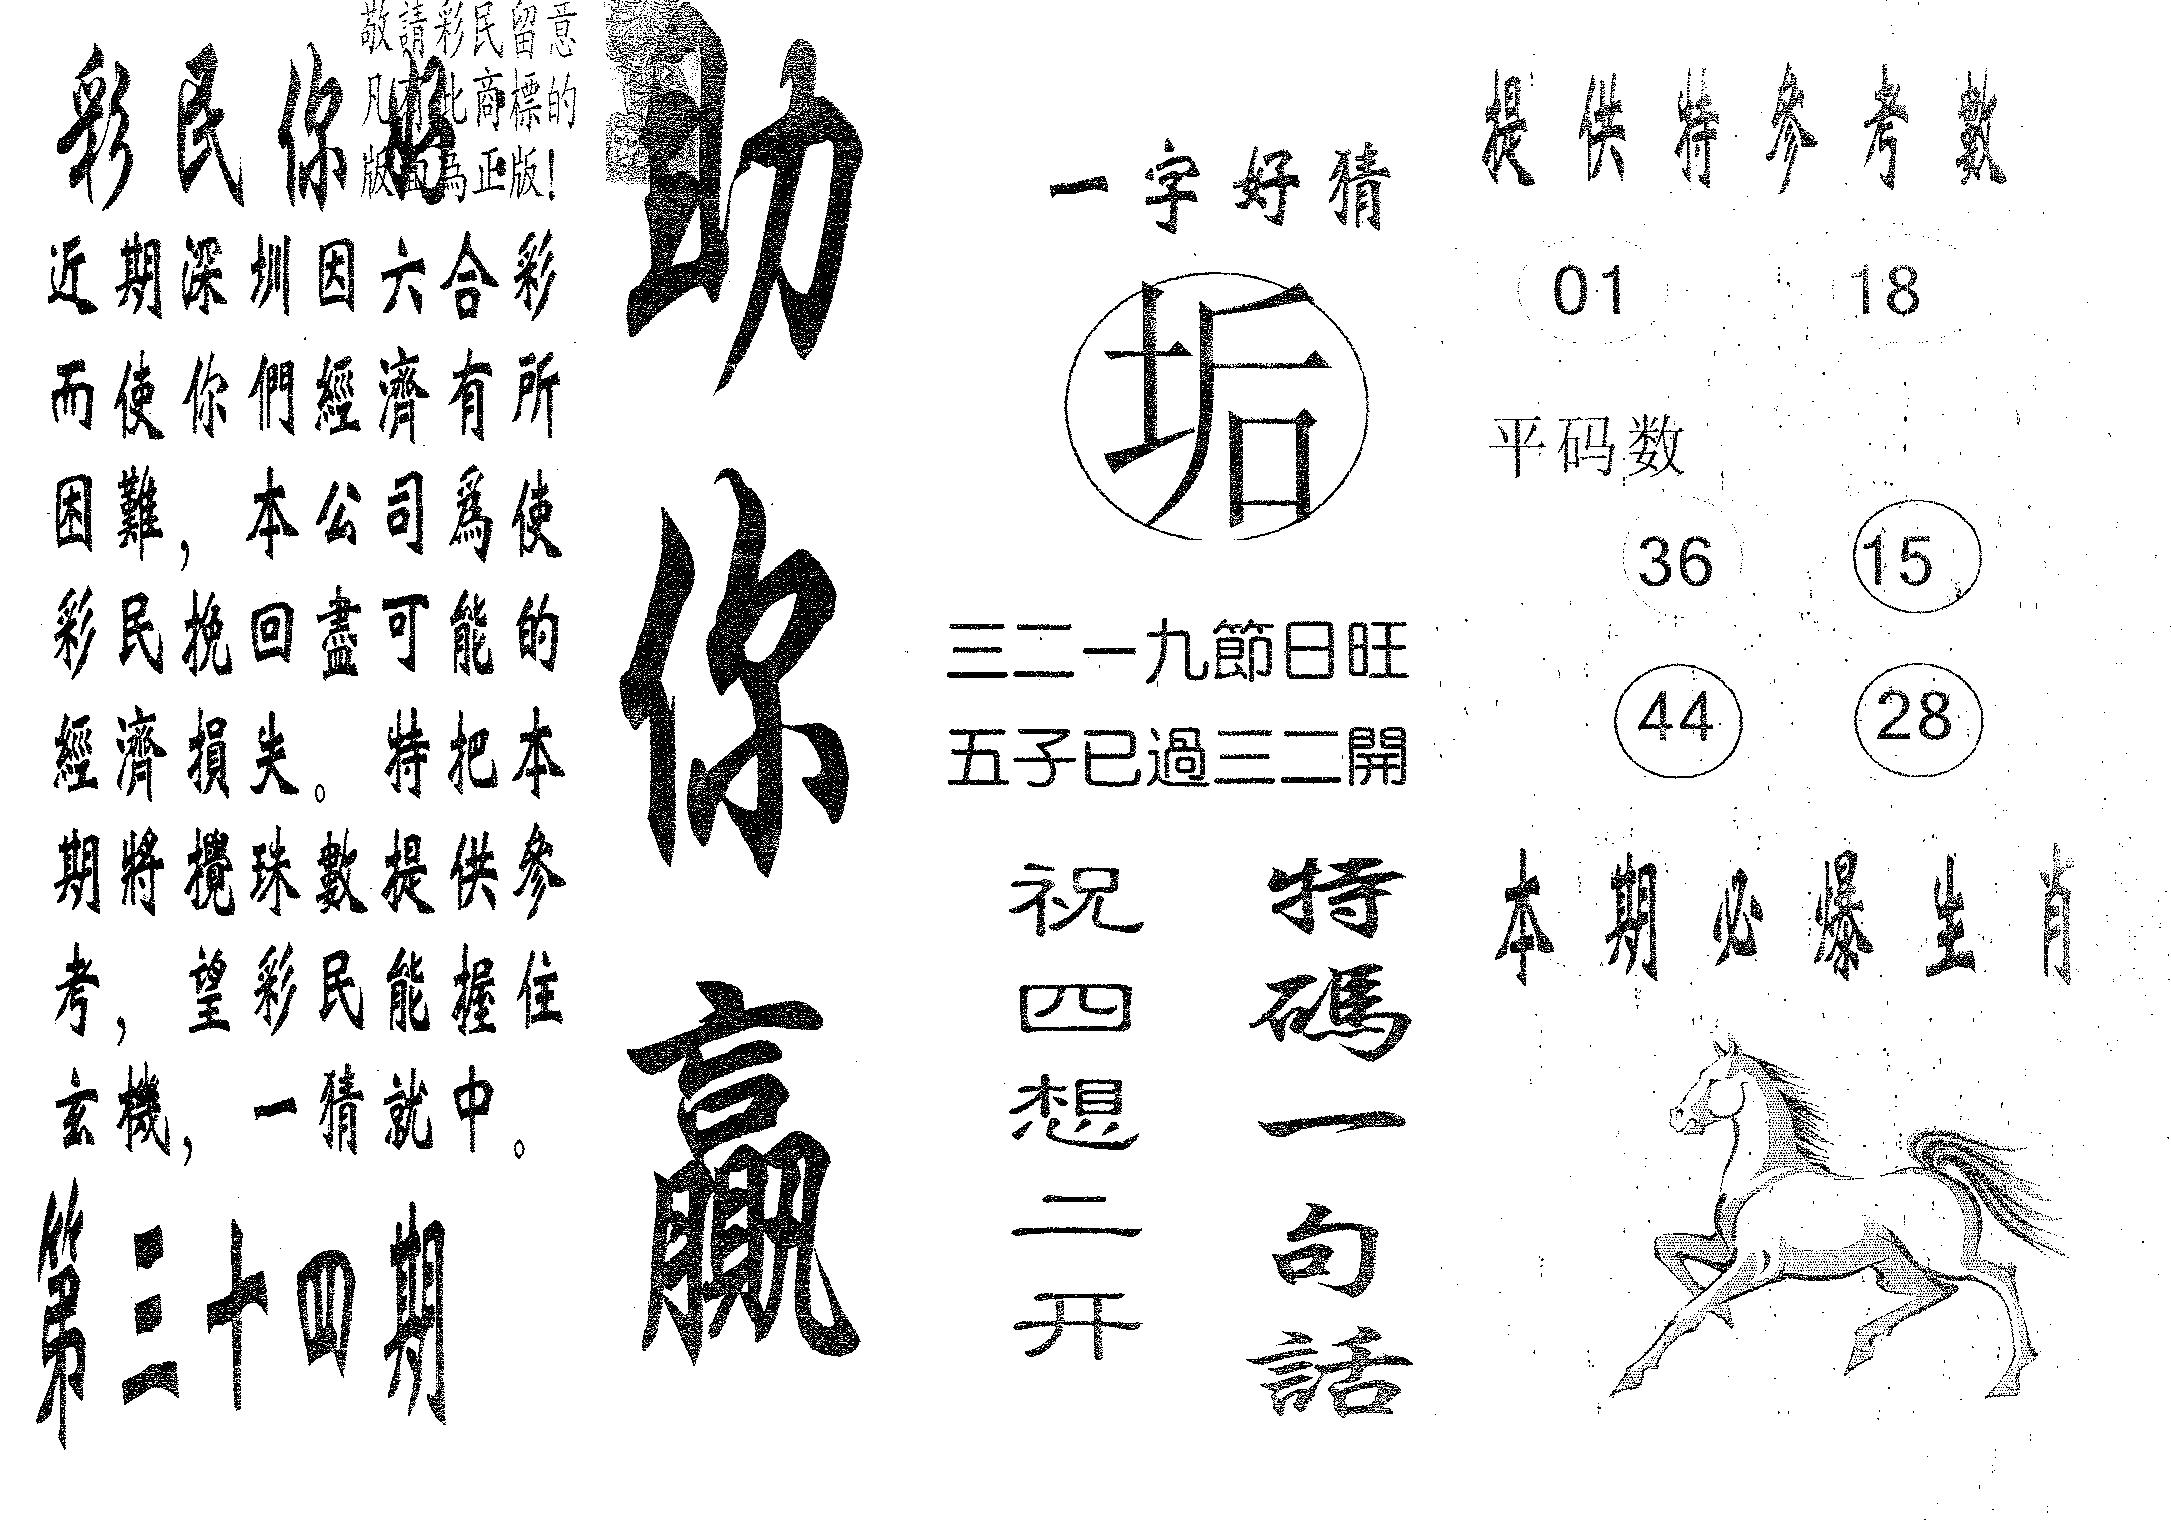 敬請彩民留意
凡有此商標的
版面為正版!
彩民你好
近期深圳因六合彩
而使你們經濟有所
困難，本公司爲使
彩民挽回盡可能的
經濟損失。特把本
期將攪珠數提供參
考，望彩民能握住
玄機，一猜就中。
第三十四期
助你贏
一字好猜
垢
三二一九節日旺
五子已過三二開
特碼一句話
祝四想二开
提供特參考數
01 18
平码数
36 15
44 28
本期必爆生肖